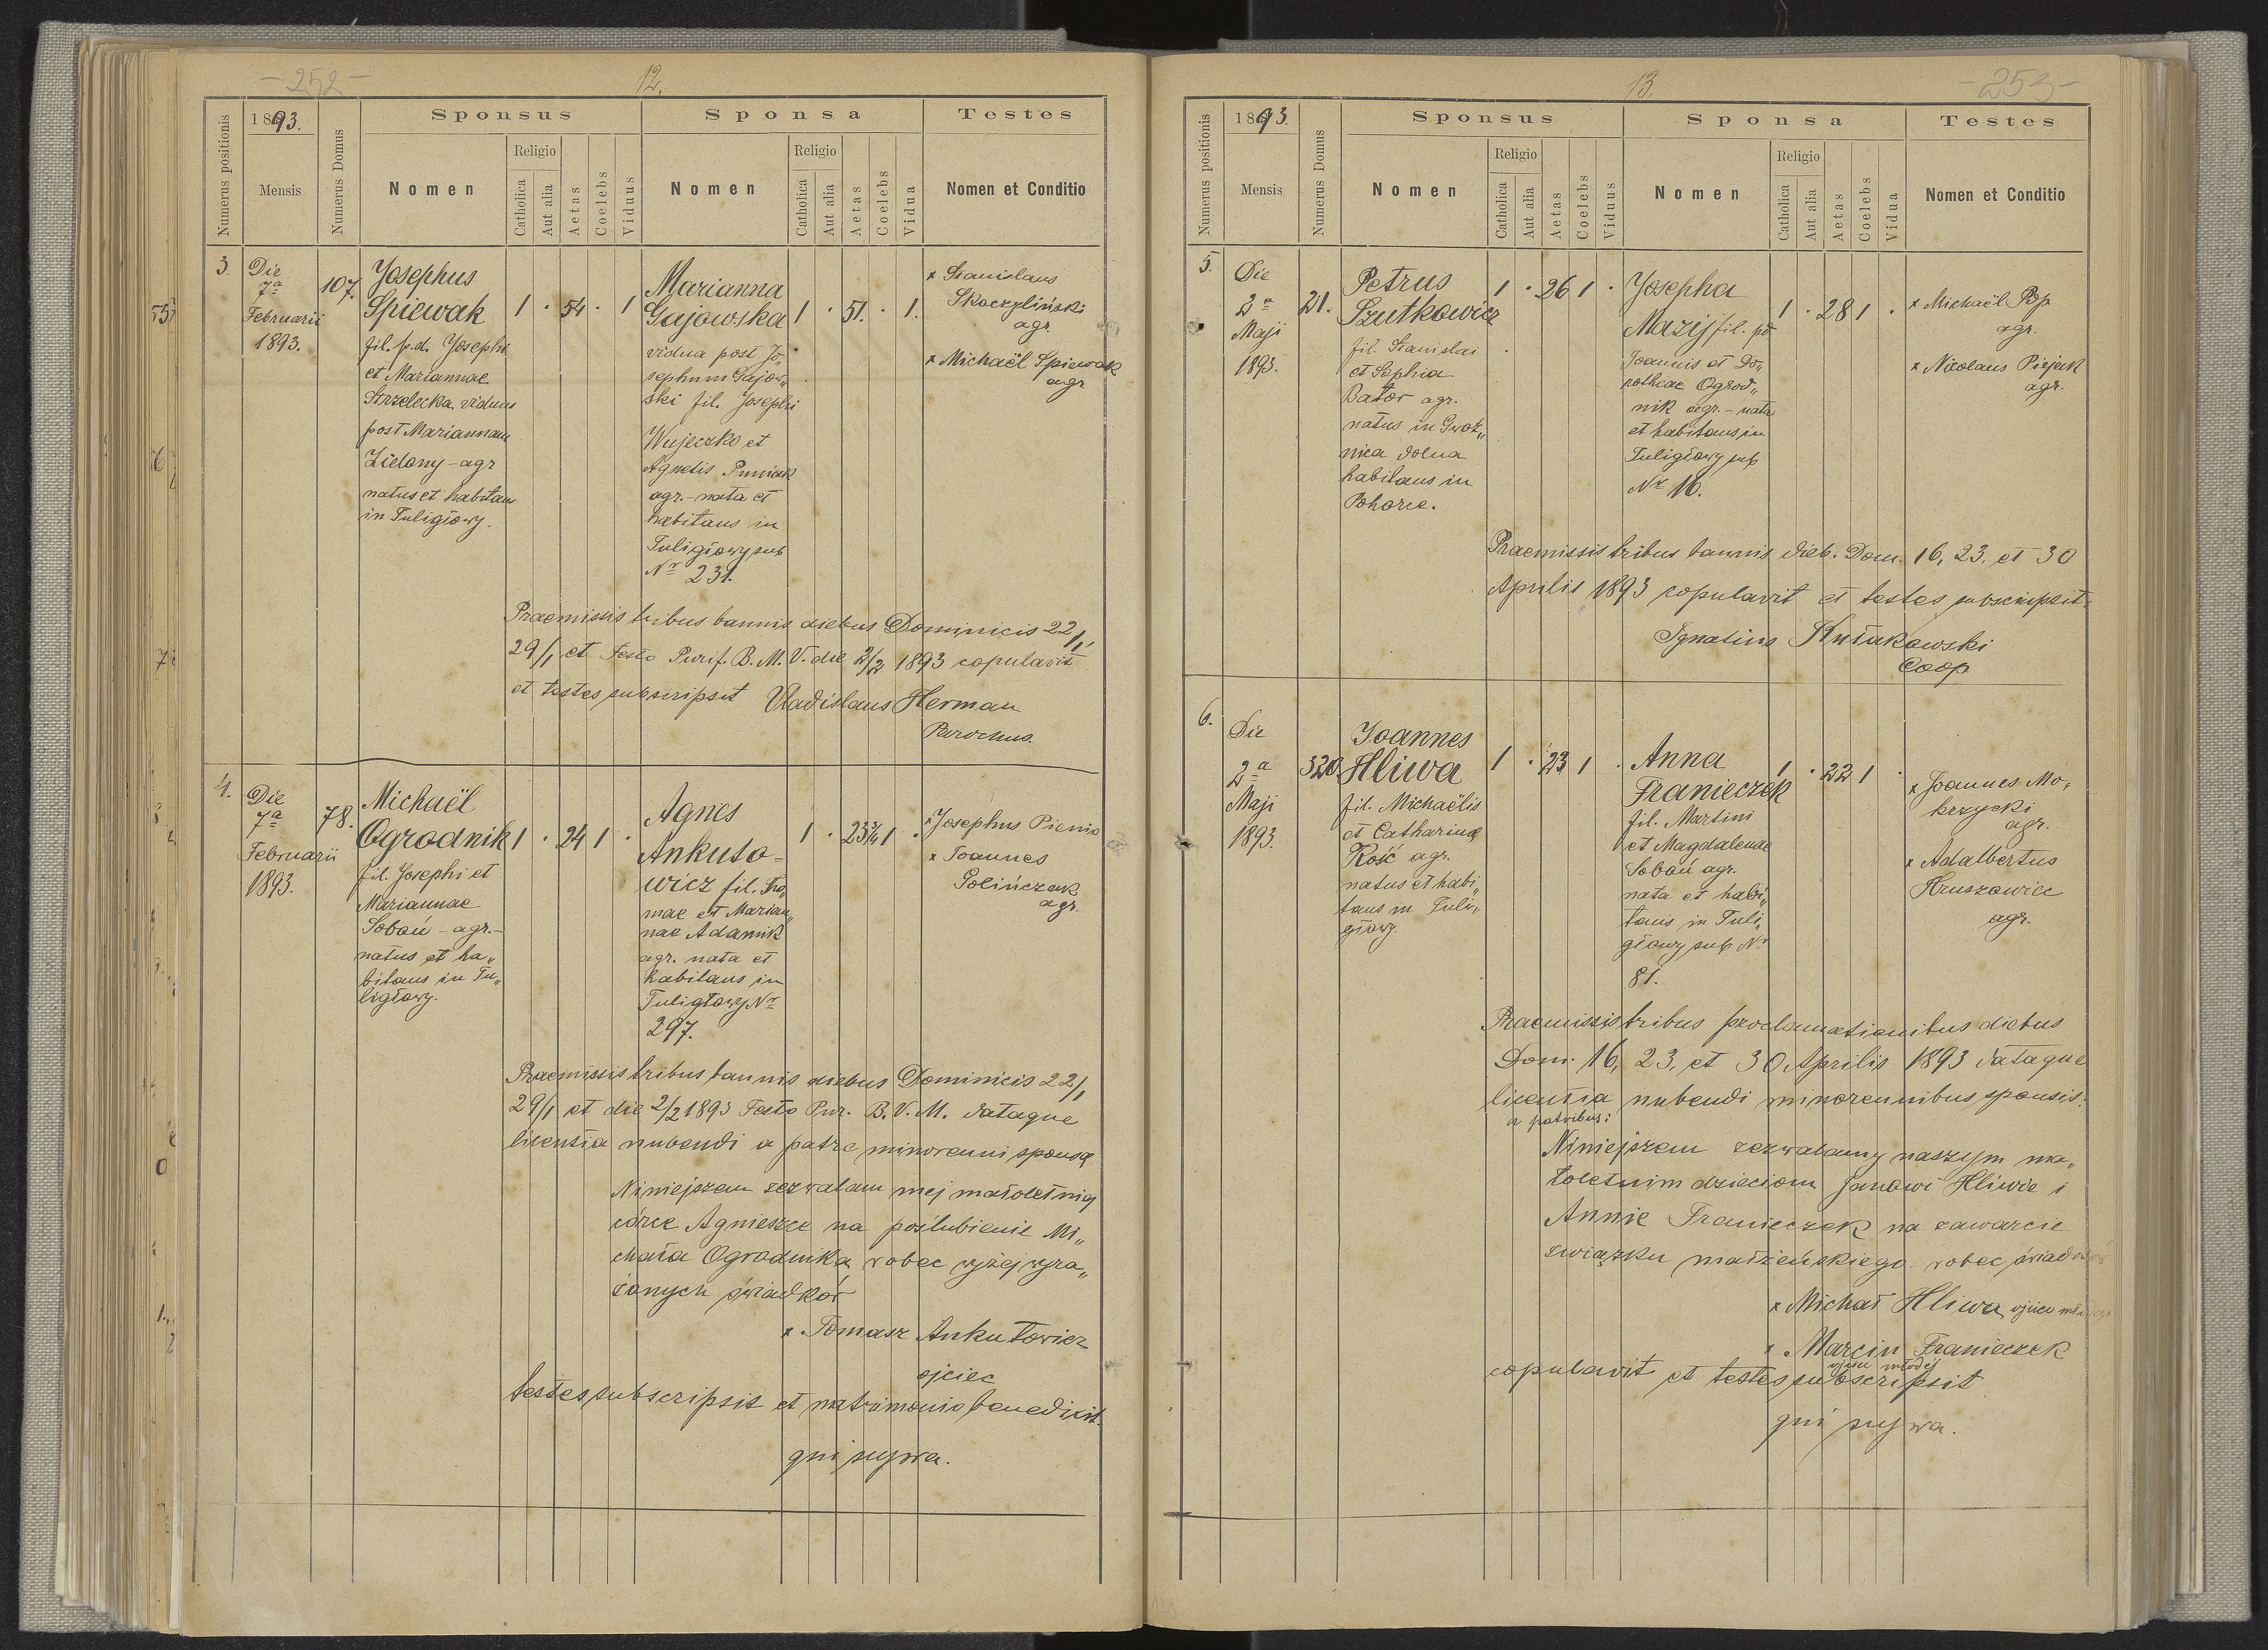 - 252 -
12.
Numerus positionis
1893.
Mensis
Numerus Domus
Sponsus
Nomen
Religio
Catholica
Aut alia
Aetas
Coelebs
Viduus
Sponsa
Nomen
Religio
Catholica
Aut alia
Aetas
Coelebs
Vidua
Testes
Nomen et Conditio
3.
Die
7a
Februarii
1893.
107.
Josephus
Spiewak
fil. p.d. Josephi
et Mariannae
Strzelecka viduus
post Mariannam
Zielony - agr
natus et habitans
in Tuligłowy.
1 · 54 · 1
Marianna
Gajowska
vidua post Jo„
sephum Gajow„
ski fil. Josephi
Wujeczko et
Agnetis Pnniak
agr. - nata et
habitans in
Tuligłowy sub
Nr 231.
1 · 51. · 1.
x Stanislaus
Skoczyliński
agr.
x Michaël Spiewak
agr
Praemissis tribus bannis diebus Dominicis 22/1,
29/1 et Festo Purif. B. M. V. die 2/2 1893 copulavit
et testes subscripsit Vladislaus Herman
Parochus.
4.
Die
7a
Februarii
1893.
78.
Michaël
Ogrodnik
fil. Josephi et
Mariannae
Soboń - agr. -
natus et ha„
bitans in Tu„
ligłowy.
1 · 24 1 ·
Agnes
Ankuto=
wicz fil. Tho„
mae et Marian„
nae Adamik
agr. nata et
habitans in
Tuligłowy Nr
297.
1 · 23¾ 1 ·
x Josephus Pienio
x Joannes
Solińczak
agr.
Praemissis tribus bannis diebus Dominicis 22/1
29/1 et die 2/2 1893 Festo Pur. B. V. M. dataque
licentia nubendi a patre minorenni sponsae
Niniejszem zezwalam mej małoletniej
córce Agnieszce na poślubienie Mi„
chała Ogrodnika wobec wyżej wyra„
żonych świadków
x Tomasz Ankutowicz
ojciec
testes subscripsit et matrimonio benedixit.
qui supra.
13.
- 253 -
Numerus positionis
1893.
Mensis
Numerus Domus
Sponsus
Nomen
Religio
Catholica
Aut alia
Aetas
Coelebs
Viduus
Sponsa
Nomen
Religio
Catholica
Aut alia
Aetas
Coelebs
Vidua
Testes
Nomen et Conditio
5.
Die
2a
Maji
1893.
21.
Petrus
Szutkowicz
fil. Stanislai
et Sophia
Bator agr.
natus in Gwoź„
nica dolna
habitans in
Pohorce.
1 · 26 1 ·
Josepha
Mazij fil. pd
Joannis et Do„
rotheae Ogrod„
nik agr. - nata
et habitans in
Tuligłowy sub
Nr 16.
1 · 28 1 ·
x Michaël Pop
agr.
x Nicolaus Piejek
agr.
Praemissis tribus bannis dieb. Dom. 16, 23, et 30
Aprilis 1893 copulavit et testes subscripsit.
Ignatius Kułakowski
Coop
6.
Die
2a
Maji
1893.
320
Joannes
Hliwa
fil. Michaëlis
et Catharinae
Kość agr.
natus et habi„
tans in Tuli„
głowy.
1 · 23 1 ·
Anna
Franieczek
fil. Martini
et Magdalenae
Soboń agr.
nata et habi„
tans in Tuli„
głowy sub Nr
81.
1 · 22 1 ·
x Joannes Mo„
krzycki
agr.
x Adalbertus
Hruszowiec
agr.
Praemissis tribus proclamationibus diebus
Dom. 16, 23, et 30 Aprilis 1893 dataque
licentia nubendi minorennibus sponsis.
a patribus:
Niniejszem zezwalamy naszym ma„
łoletnim dzieciom Janowi Hliwie i
Annie Franieczek na zawarcie
związku małżeńskiego wobec świadków
x Michał Hliwa ojciec
x Marcin Franieczek
ojciec młodej
copulavit et testes subscripsit
qui supra.